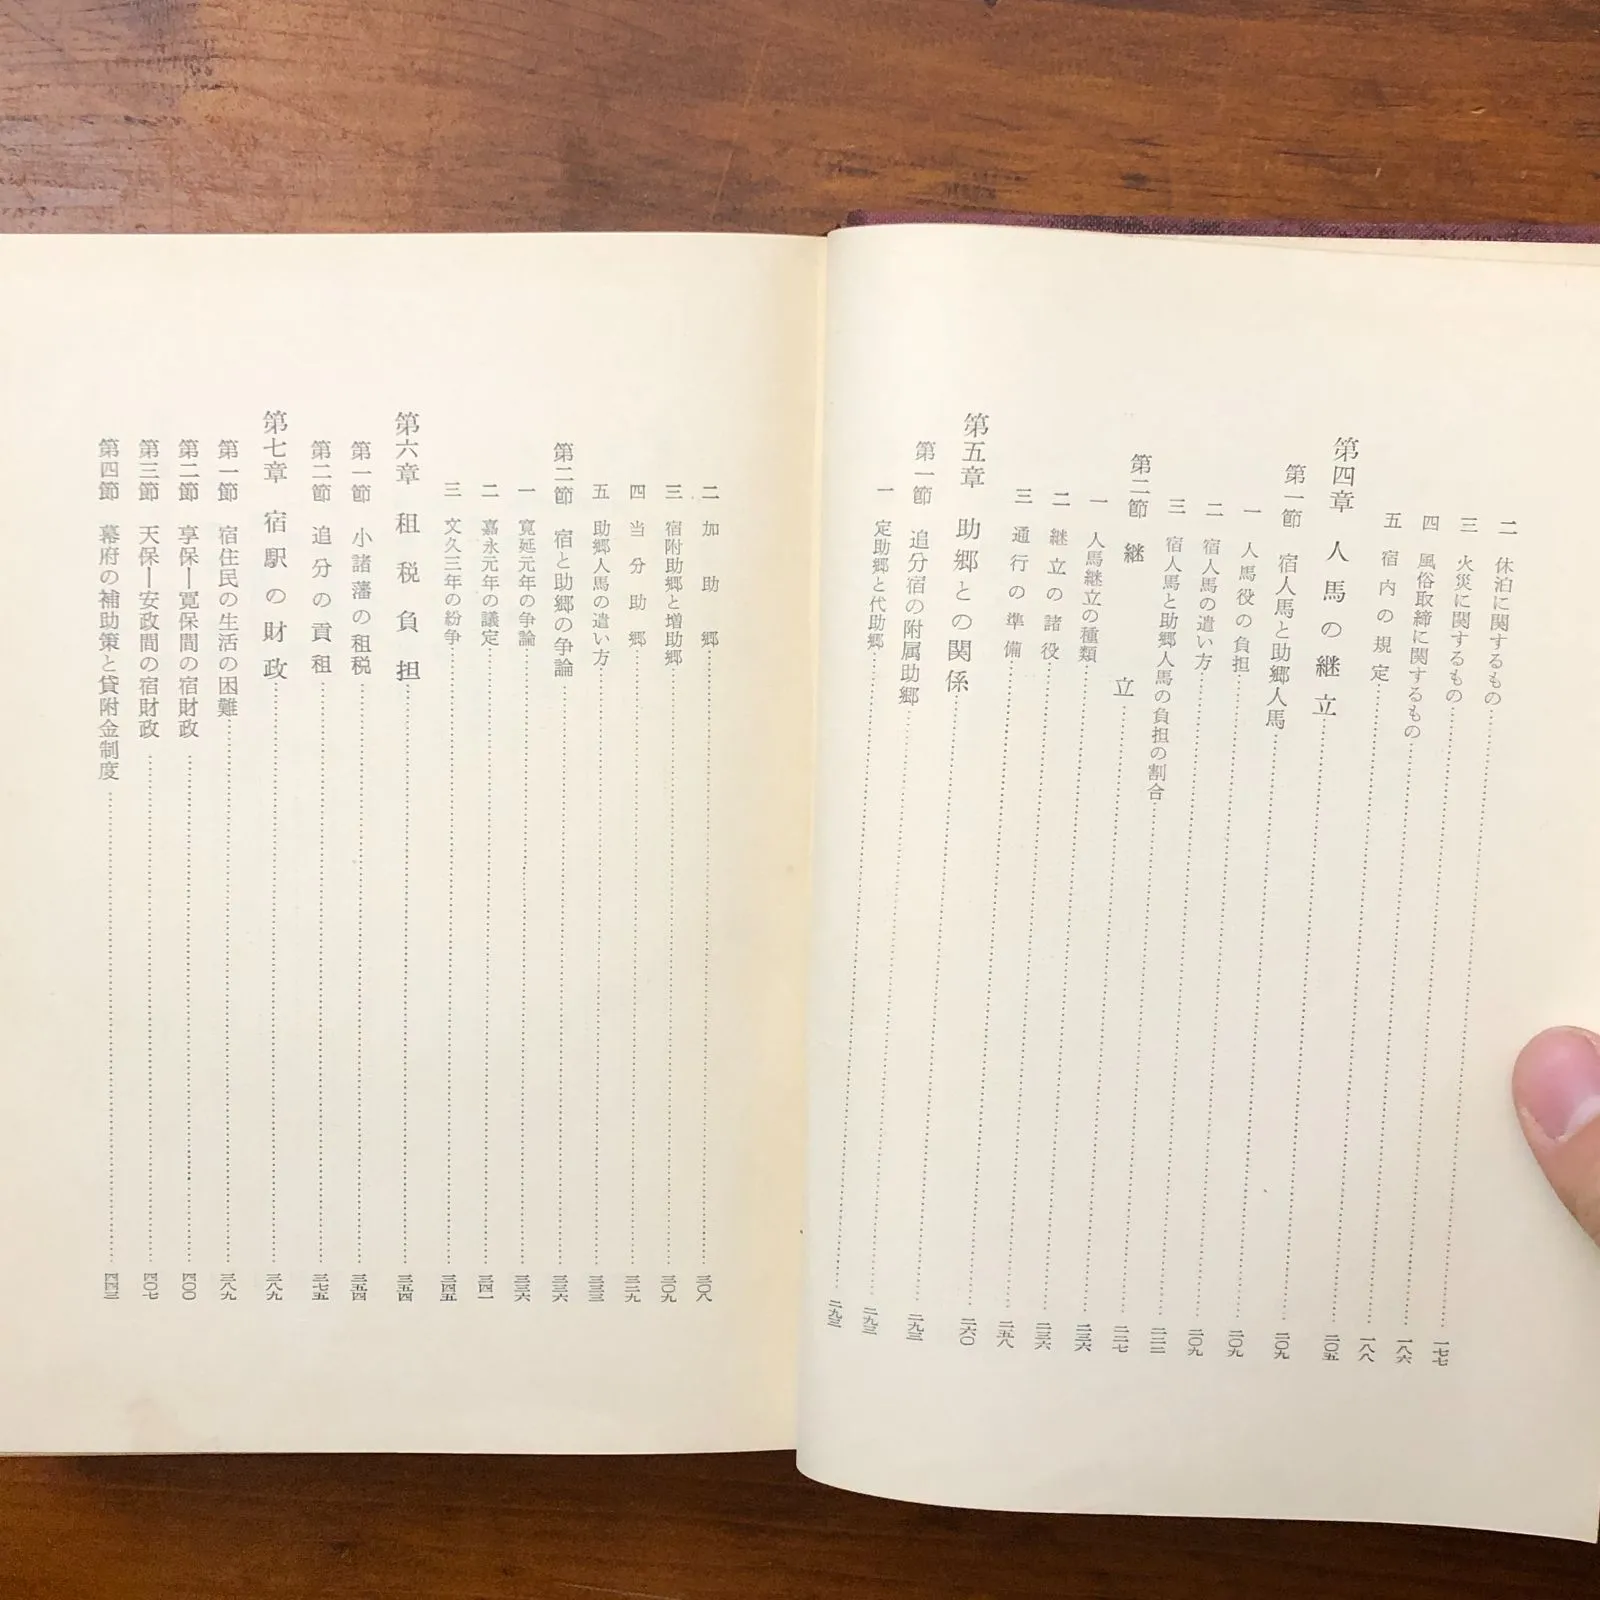 二 休泊に関するもの…………一七七
三 火災に関するもの…………一八六
四 風俗取締に関するもの…………一八八
五 宿内の規定…………二〇五
第四章 人馬の継立…………二〇九
第一節 宿人馬と助郷人馬…………二〇九
一 人馬役の負担…………二〇九
二 宿人馬の遣い方…………二二二
三 宿人馬と助郷人馬の負担の割合…………二二七
第二節 継立…………二三六
一 人馬継立の種類…………二三六
二 継立の諸役…………二五八
三 通行の準備…………二六〇
第五章 助郷との関係…………二九三
第一節 追分宿の附属助郷…………二九三
一 定助郷と代助郷…………二九三
二 加助郷…………三〇八
三 宿附助郷と増助郷…………三〇九
四 当分助郷…………三二九
五 助郷人馬の遣い方…………三三三
第二節 宿と助郷の争論…………三三六
一 寛延元年の争論…………三三六
二 嘉永元年の議定…………三四一
三 文久三年の紛争…………三四五
第六章 租税負担…………三五四
第一節 小諸藩の租税…………三五四
第二節 追分の貢租…………三七五
第七章 宿駅の財政…………三八九
第一節 宿住民の生活の困難…………三八九
第二節 享保―寛保間の宿財政…………四〇〇
第三節 天保―安政間の宿財政…………四〇七
第四節 幕府の補助策と貸附金制度…………四四三